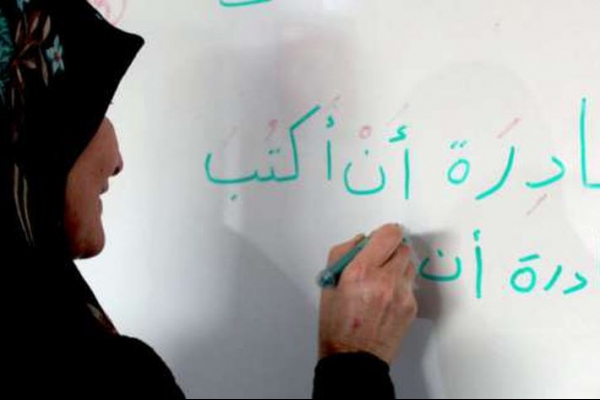 ادِرَة أَنْ أَكتُبَ
درة أن